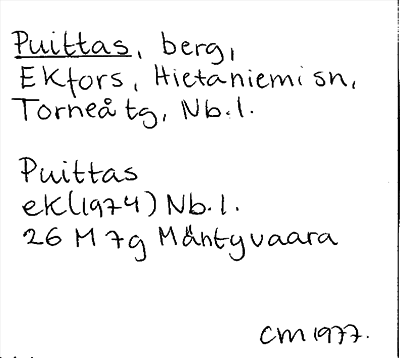 Puittas, berg,
Ekfors, Hietaniemi sn,
Torneå tg, Nb. l.
Puittas
ek (1974) Nb. l.
26 M 7g Mäntyvaara
CM 1977.